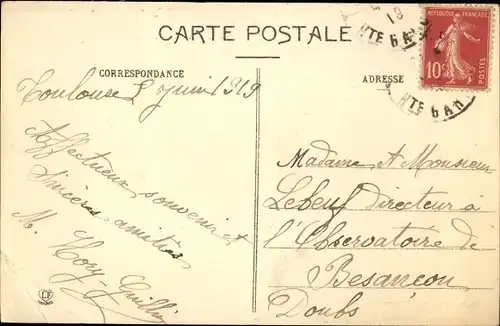 CARTE POSTALE
CORRESPONDANCE
ADRESSE
RÉPUBLIQUE FRANÇAISE
10c
POSTES
Toulouse 2 juin 1919
Affectueux souvenir et
Sincères amitiés
M. Hory-
Madame et Monsieur
Lebeuf directeur à
l'Observatoire de
Besançon
Doubs